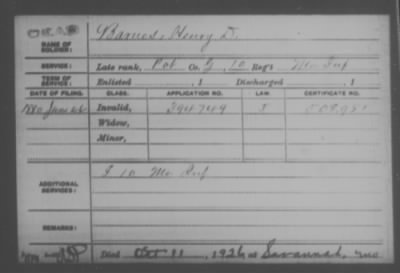 Barnes, Henry D.
NAME OF SOLDIER:
SERVICE: Late rank, Co. G, 10 Reg't Mo Inf
TERM OF SERVICE: Enlisted , 1 Discharged , 1
DATE OF FILING. CLASS. APPLICATION NO. LAW. CERTIFICATE NO.
1880 June 26 Invalid, 394749
Widow,
Minor,
ADDITIONAL SERVICES: I 10 Mo Inf
REMARKS:
Died Oct 11, 1926 at Savannah, Mo